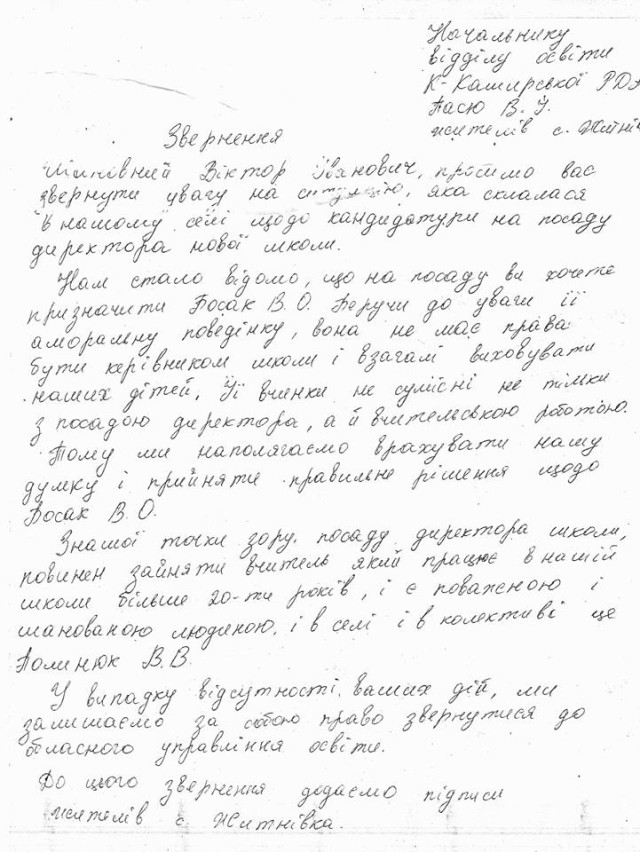 Начальнику
відділу освіти
К-Каширської РДА
Пасю В. І.
жителів с. Житнів
Звернення
Шановний Віктор Іванович, просимо вас
звернути увагу на ситуацію, яка склалася
в нашому селі щодо кандидатури на посаду
директора нової школи.
Нам стало відомо, що на посаду ви хочете
призначити Босак В.О. Беручи до уваги її
аморальну поведінку, вона не має права
бути керівником школи і взагалі виховувати
наших дітей. Її вчинки не сумісні не тільки
з посадою директора, а й вчительською роботою.
Тому ми наполягаємо врахувати нашу
думку і прийняти правильне рішення щодо
Босак В.О.
Знашої точки зору посаду директора школи,
повинен зайняти вчитель який працює в нашій
школі більше 20-ти років, і є поважною і
шанованою людиною і в селі і в колективі це
Полинюк В.В.
У випадку відсутності ваших дій, ми
залишаємо за собою право звернутися до
обласного управління освіти.
До цього звернення додаємо підписи
жителів с. Житнівка.